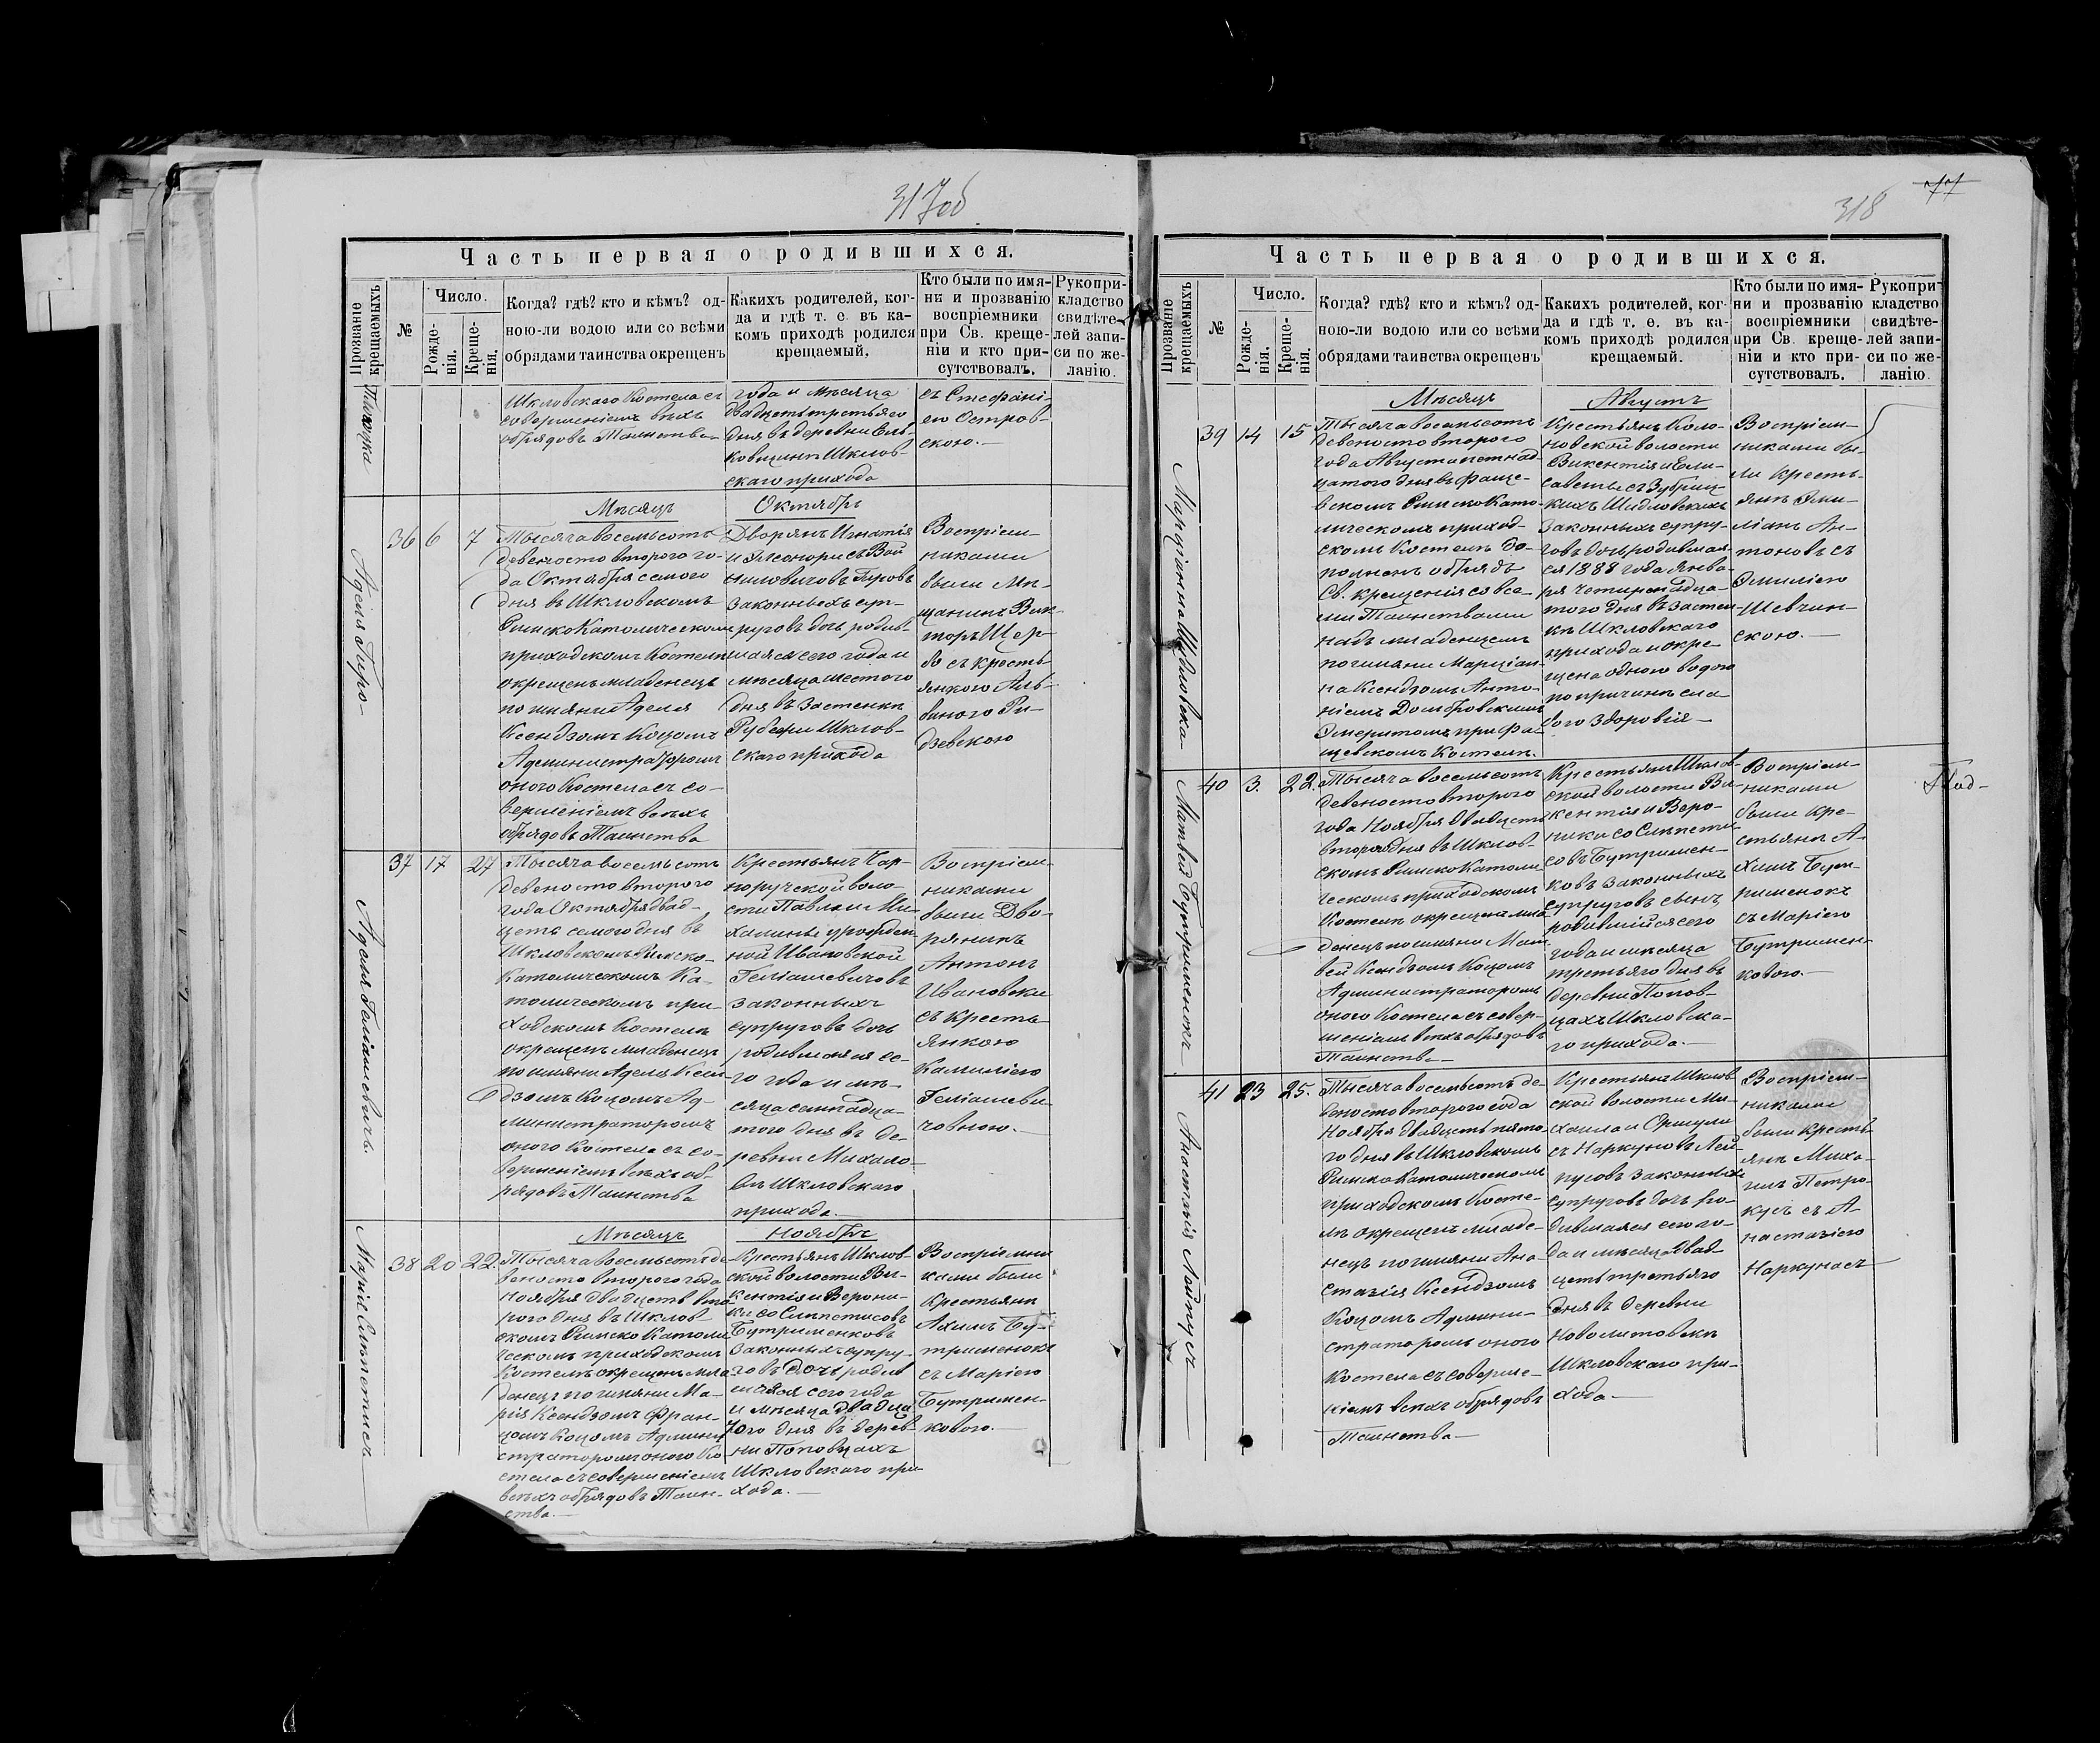 317об
Часть первая о родившихся.
Прозваніе крещаемыхъ
№
Число.
Рожде-
нія.
Креще-
нія.
Когда? гдѣ? кто и кѣмъ? од-
ною-ли водою или со всѣми
обрядами таинства окрещенъ
Какихъ родителей, ког-
да и гдѣ т. е. въ ка-
комъ приходѣ родился
крещаемый.
Кто были по имя-
ни и прозванію
воспріемники
при Св. креще-
ніи и кто при-
сутствовалъ.
Рукопри-
кладство
свидѣте-
лей запи-
си по же-
ланію.
Шкловскаго Костела съ
совершеніемъ всѣхъ
обрядовъ Таинства
года и мѣсяца
двадцать третьяго
дня въ деревни
Шклов-
скаго прихода
съ Стефані-
ею Остров-
скою.
Мѣсяцъ Октябрь
Аделя Гиро
36 6 7
Тысяча восемьсотъ
девяносто второго го-
да Октября семого
дня въ Шкловскомъ
Римско Католическомъ
приходскомъ Костелѣ
окрещенъ младенецъ
по имяни Аделя
Ксендзомъ Коцомъ
Администраторомъ
оного Костела съ со-
вершеніемъ всѣхъ
обрядовъ Таинства
Дворянъ Игнатія
и Элеоноры съ Вой
ниловичовъ Гировъ
законныхъ суп-
руговъ дочь родив-
шаяся сего года и
мѣсяца шестого
дня въ застенкѣ
Шклов-
скаго прихода
Воспріем-
никами
были Мѣ-
щанинъ Вик-
торъ Щер-
бо съ кресть-
янкою Аль-
биною Ри-
дзевскою
Аделя Геліашевичъ
37 17 27
Тысяча восемьсотъ
девяносто второго
года Октября двад-
цать семого дня въ
Шкловскомъ Римско-
Католическомъ Ка-
толическомъ при-
ходскомъ Костелѣ
окрещенъ младенецъ
по имяни Аделя Ксен
дзомъ Коцомъ Ад-
министраторомъ
оного Костела съ со-
вершеніемъ всѣхъ об-
рядовъ Таинства
Крестьянъ Чар-
норучской воло-
сти Павла и Ми-
халины урожден
ной Ивановской
Геліашевичовъ
законныхъ
супруговъ дочь
родившаяся се-
го года и мѣ-
сяца семнадца-
того дня въ де-
ревни Михало-
вѣ Шкловского
прихода.
Воспріем-
никами
были Дво-
рянинъ
Антонъ
Ивановски
съ кресть-
янкою
Камиліею
Геліашеви-
човною.
Мѣсяцъ Ноябрь
Марія Слипетись
38 20 22
Тысяча восемьсотъ де-
вяносто второго года
Ноября двадцать вто-
рого дня въ Шклов-
скомъ Римско Католи
ческомъ приходскомъ
Костелѣ окрещенъ мла-
денецъ по имяни Ма-
рія Ксендзомъ Фран-
цомъ Коцомъ Админи
страторомъ оного Ко-
стела съ совершеніемъ
всѣхъ обрядовъ Таин-
ства.
Крестьянъ Шклов-
ской волости Ви-
кентія и Верони-
ки со Слипетисовъ
Бутрименковъ
законныхъ супру-
говъ дочь родив
шаяся сего года
и мѣсяца двадца
того дня въ дерев-
ни Поповцахъ
Шкловского при-
хода.
Воспріемни
ками были
Крестьяни
Ахимъ Бу-
трименокъ
съ Маріею
Бутримен-
ковою.
318 77
Часть первая о родившихся.
Прозваніе крещаемыхъ
№
Число.
Рожде-
нія.
Креще-
нія.
Когда? гдѣ? кто и кѣмъ? од-
ною-ли водою или со всѣми
обрядами таинства окрещенъ
Какихъ родителей, ког-
да и гдѣ т. е. въ ка-
комъ приходѣ родился
крещаемый.
Кто были по имя-
ни и прозванію
воспріемники
при Св. креще-
ніи и кто при-
сутствовалъ.
Рукопри-
кладство
свидѣте-
лей запи-
си по же-
ланію.
Мѣсяцъ Августъ
Марціанна Шидловска
39 14 15
Тысяча восемьсотъ
девяносто второго
года Августа петнад-
цатого дня въ Фаще-
вскомъ Римско Като-
лическомъ приход-
скомъ Костелѣ до-
полненъ обрядъ
Св. крещенія со все-
ми Таинствами
надъ младенцемъ
по имяни Марціан-
на Ксендзомъ Анто-
ніемъ Домбровскимъ
Эмеритомъ при Фа-
щевскомъ Костелѣ.
Крестьянъ
волости
Викентія и Ели-
саветы съ Зубриц-
кихъ Шидловскихъ
законныхъ супру-
говъ дочь родившая-
ся 1888 года Янва-
ря четырнадца-
того дня въ застен-
кѣ Шкловского
прихода и окре-
щена одною водою
по причинѣ сла-
бого здоровія
Воспріем-
никами бы-
ли кресть-
янъ Эми-
ліанъ Ан-
тоновъ съ
Эмиліею
Шевчин-
скою.
Матвей Бутрименокъ
40 3. 22.
Тысяча восемьсотъ
девяносто второго
года Ноября двадцать
второго дня въ Шклов-
скомъ Римско Католи
ческомъ приходскомъ
Костелѣ окрещенъ мла
денецъ по имяни Мат
вей Ксендзомъ Коцомъ
Администраторомъ
оного Костела съ совер-
шеніемъ всѣхъ обрядовъ
Таинства
Крестьянъ Шклов-
ской волости Ви-
кентія и Веро-
ники со Слипети-
совъ Бутримен-
ковъ законныхъ
супруговъ сынъ
родившійся сего
года и мѣсяца
третьяго дня въ
деревни Попов-
цахъ Шкловска-
го прихода.
Воспріем-
никами
были Кре-
стьяни А-
химъ Бут-
рименокъ
съ Маріею
Бутримен-
ковою.
Анастазія Лайпусъ
41 23 25.
Тысяча восемьсотъ де-
вяносто второго года
Ноября двадцать пято-
го дня въ Шкловскомъ
Римско Католическомъ
приходскомъ Косте-
лѣ окрещенъ младе-
нецъ по имяни Ана-
стазія Ксендзомъ
Коцомъ Админи-
страторомъ оного
Костела съ соверше-
ніемъ всѣхъ обрядовъ
Таинства
Крестьянъ Шклов
ской волости Ми-
хаила и Оршули
съ Наркуновъ Лай-
пусовъ законныхъ
супруговъ дочь ро-
дившаяся сего го-
да и мѣсяца двад-
цать третьяго
дня въ деревни
Новолитовскѣ
Шкловскаго при-
хода.
Воспріем-
никами
были кресть-
яни Миха-
илъ Петро-
кусъ съ А-
настазіею
Наркунасъ